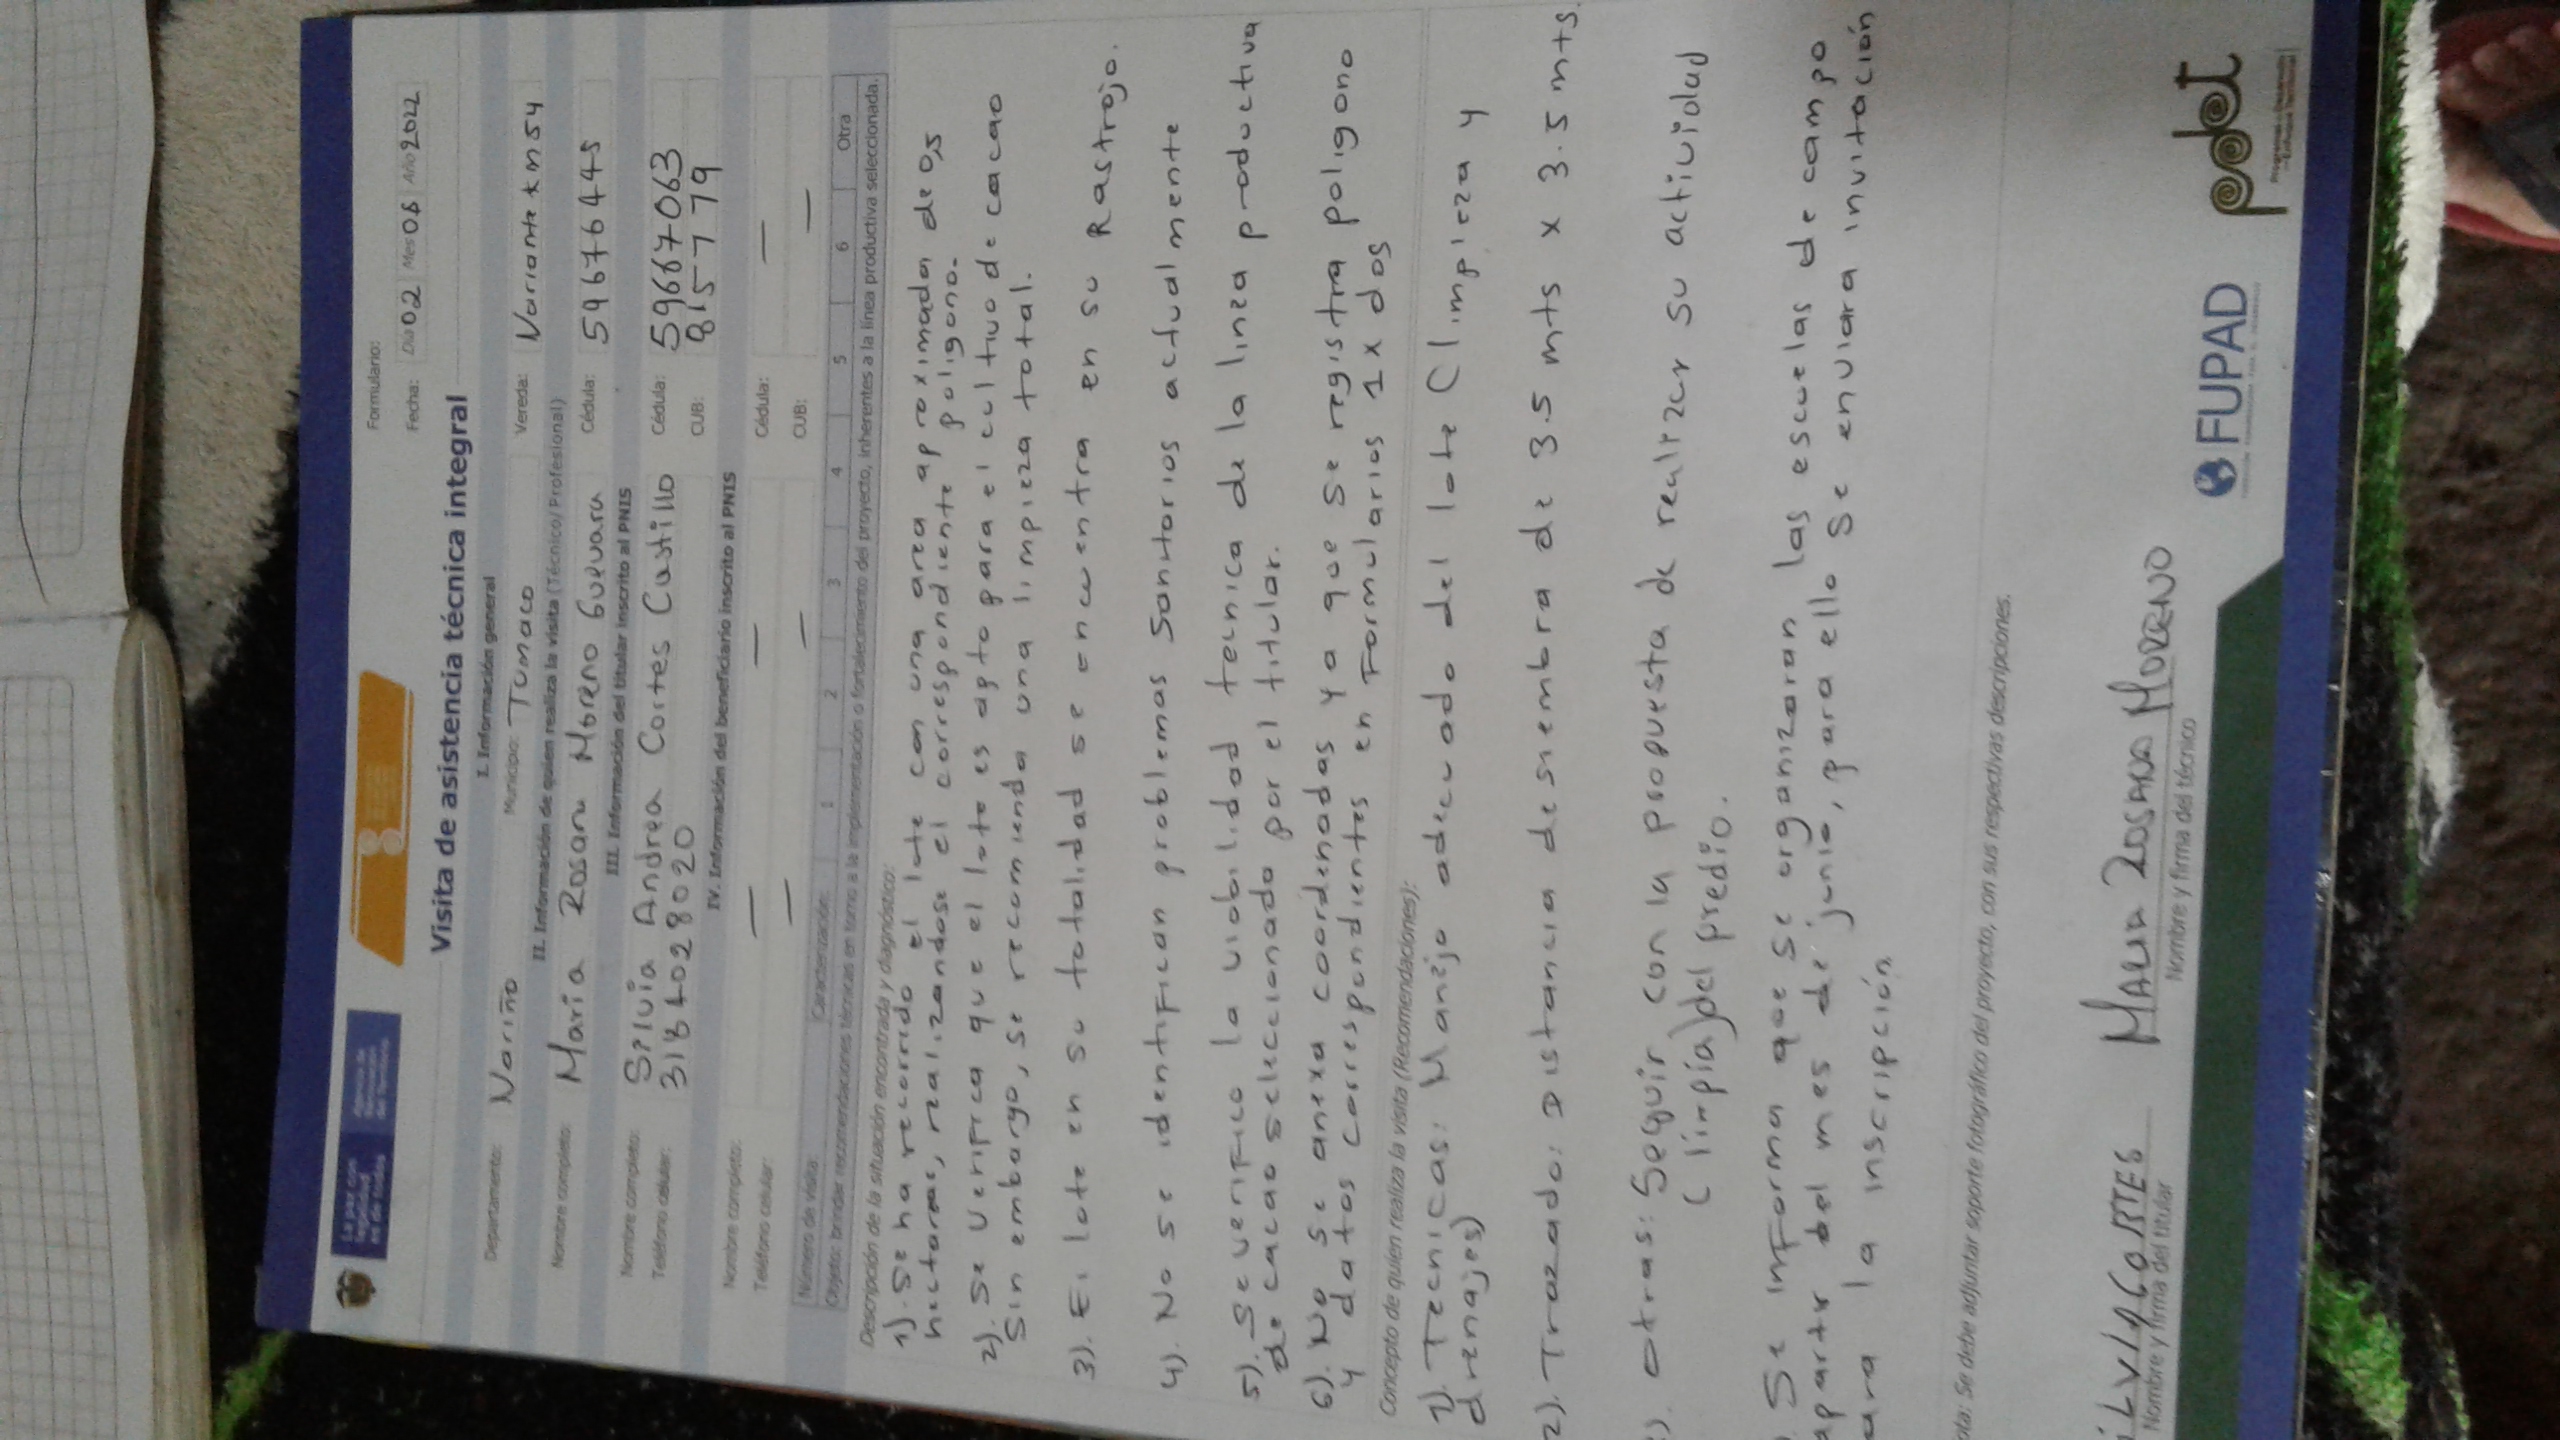 La paz con legalidad es de todos
Agencia de Renovación del Territorio
Formulario:
Fecha: Día 02 Mes 08 Año 2022
Visita de asistencia técnica integral
I. Información general
Departamento: Nariño Municipio: Tumaco Vereda: Variante km 54
II. Información de quien realiza la visita (Técnico/Profesional)
Nombre completo: María Rosana Moreno Guevara Cédula: 59676445
III. Información del titular inscrito al PNIS
Nombre completo: Silvia Andrea Cortes Castillo Cédula: 59667063
Teléfono celular: 3184028020 CUB: 815779
IV. Información del beneficiario inscrito al PNIS
Nombre completo: — — Cédula: —
Teléfono celular: — — CUB: —
Número de visita: Caracterización: 1 2 3 4 5 6 Otra
Objeto: brindar recomendaciones técnicas en torno a la implementación o fortalecimiento del proyecto, inherentes a la línea productiva seleccionada.
Descripción de la situación encontrada y diagnóstico:
1). Se ha recorrido el lote con una area aproximada de 0,5
hectareas, realizandose el correspondiente poligono.
2). Se verifica que el lote es apto para el cultivo de cacao
Sin embargo, se recomienda una limpieza total.
3). El lote en su totalidad se encuentra en su Rastrojo.
4). No se identifican problemas Sanitarios actualmente
5). Se verifico la viabilidad tecnica de la linea productiva
de cacao seleccionado por el titular.
6). No se anexa coordenadas ya que se registra poligono
y datos correspondientes en Formularios 1 x dos
Concepto de quien realiza la visita (Recomendaciones):
1). Tecnicas: Manejo adecuado del lote (limpieza y
drenajes)
2). Trazado: Distancia de siembra de 3.5 mts x 3.5 mts.
). otras: Seguir con la propuesta de realizar su actividad
(limpia) del predio.
) Se informa que se organizaran las escuelas de campo
apartir del mes de junio, para ello se enviara invitación
ara la inscripción
ota: Se debe adjuntar soporte fotográfico del proyecto, con sus respectivas descripciones.
iLVIA CORTES MARIA ROSANA MORENO
Nombre y firma del titular Nombre y firma del técnico
FUPAD
pdet